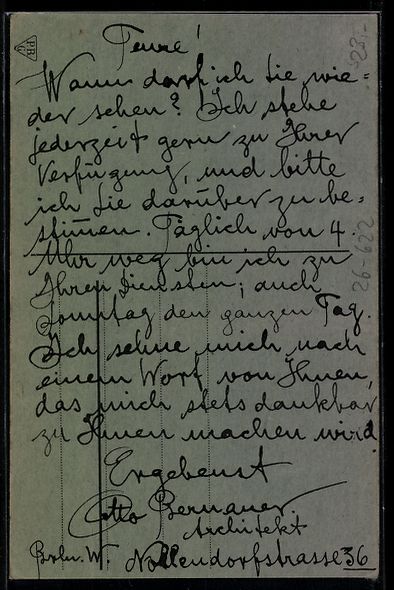 Teure!
Wann darf ich Sie wie=
der sehen? Ich stehe
jederzeit gern zu Ihrer
Verfügung, und bitte
ich Sie darüber zu be=
stim̄en. Täglich von 4.
Uhr weg bin ich zu
Ihren Diensten; auch
Sonntag den ganzen Tag.
Ich sehne mich nach
einem Wort von Ihnen,
das mich stets dankbar
zu Ihnen machen wird.
Ergebenst
Otto Bernauer
Architekt
Berlin. W. Nollendorfstrasse 36